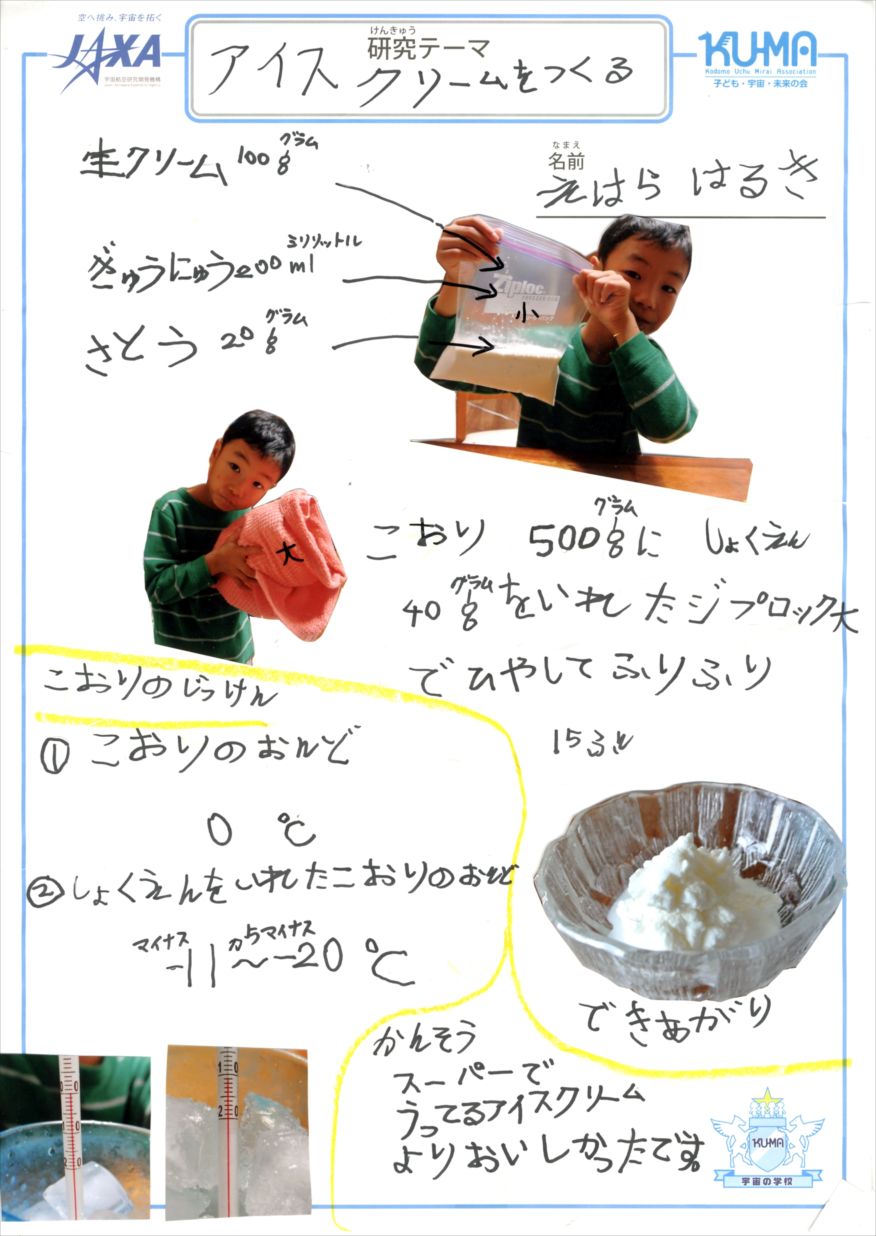 空へ挑み、宇宙を拓く
JAXA
宇宙航空研究開発機構
Japan Aerospace Exploration Agency
けんきゅう
研究テーマ
アイスクリームをつくる
KU-MA
Kodomo Uchu Mirai Association
子ども・宇宙・未来の会
なまえ
名前
えはら はるき
グラム
生クリーム 100g
ミリリットル
ぎゅうにゅう200ml
グラム
さとう 20g
Ziploc
小
大
グラム
こおり 500gに しょくえん
グラム
40gをいれたジプロック大
でひやしてふりふり
15ふん
こおりのじっけん
① こおりのおんど
0 ℃
②しょくえんをいれたこおりのおんど
マイナス からマイナス
-11〜-20 ℃
できあがり
かんそう
スーパーで
うってるアイスクリーム
よりおいしかったです。
KU-MA
宇宙の学校